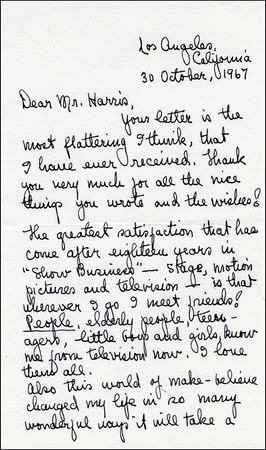 Los Angeles,
California
30 October, 1967
Dear Mr. Harris,
Your letter is the
most flattering I think, that
I have ever received. Thank
you very much for all the nice
things you wrote and the wishes!
The greatest satisfaction that has
come after eighteen years in
"Show Business" — stage, motion
pictures and television — is that
wherever I go I meet friends!
People, elderly people, teen-
agers, little boys and girls, know
me from television now. I love
them all.
Also this world of make-believe
changed my life in so many
wonderful ways it will take a